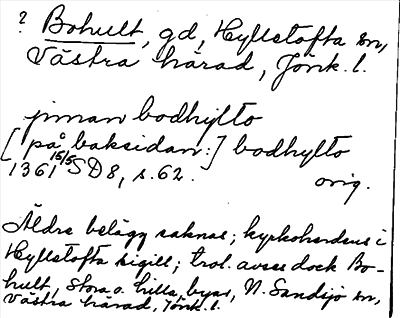 ? Bohult, gd, Hyltstofta sn,
Västra härad, Jönk. l.
jnan bodhylto
[på baksidan:] bodhylto
1361 15/5 SD 8, s. 62. orig.
Äldre belägg saknas; kyrkoherdens i
Hyltstofta sigill; trol. avses dock Bo-
hult, Stora o. Lilla, byar, N. Sandsjö sn,
Västra härad, Jönk. l.